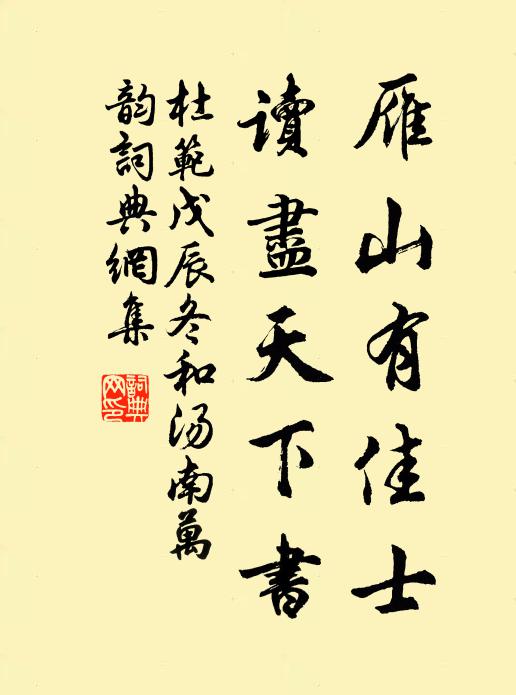 雁山有佳士
讀盡天下書
杜範戊辰冬和湯南萬
韵詞典網集
詞典網印